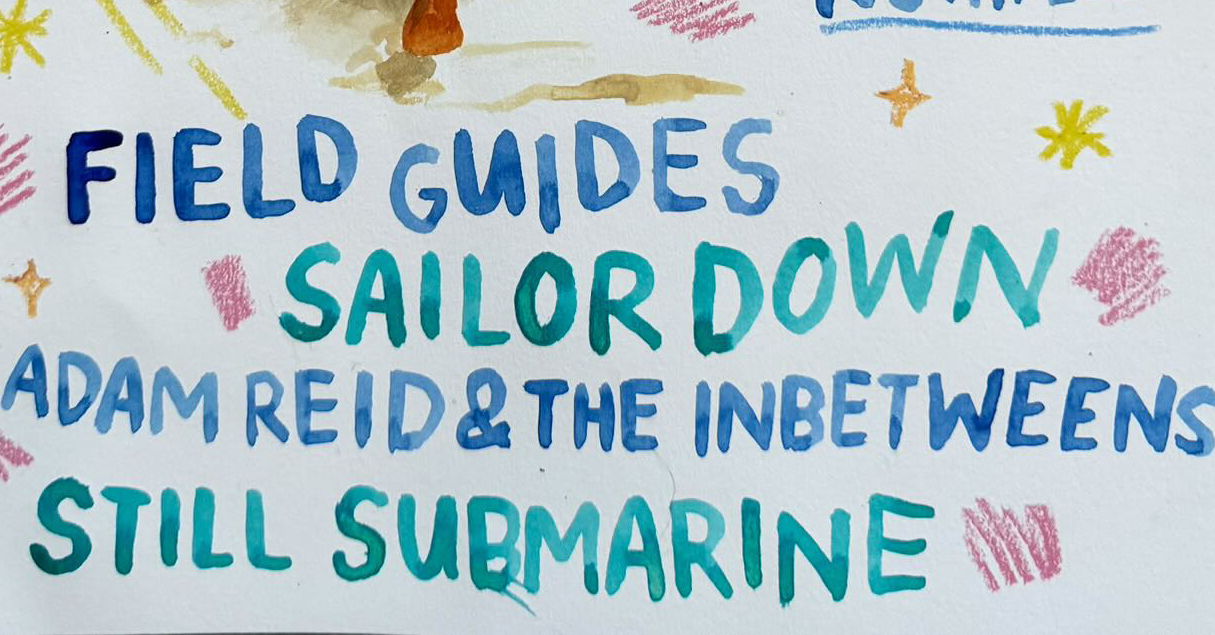 FIELD GUIDES
SAILOR DOWN
ADAM REID & THE INBETWEENS
STILL SUBMARINE